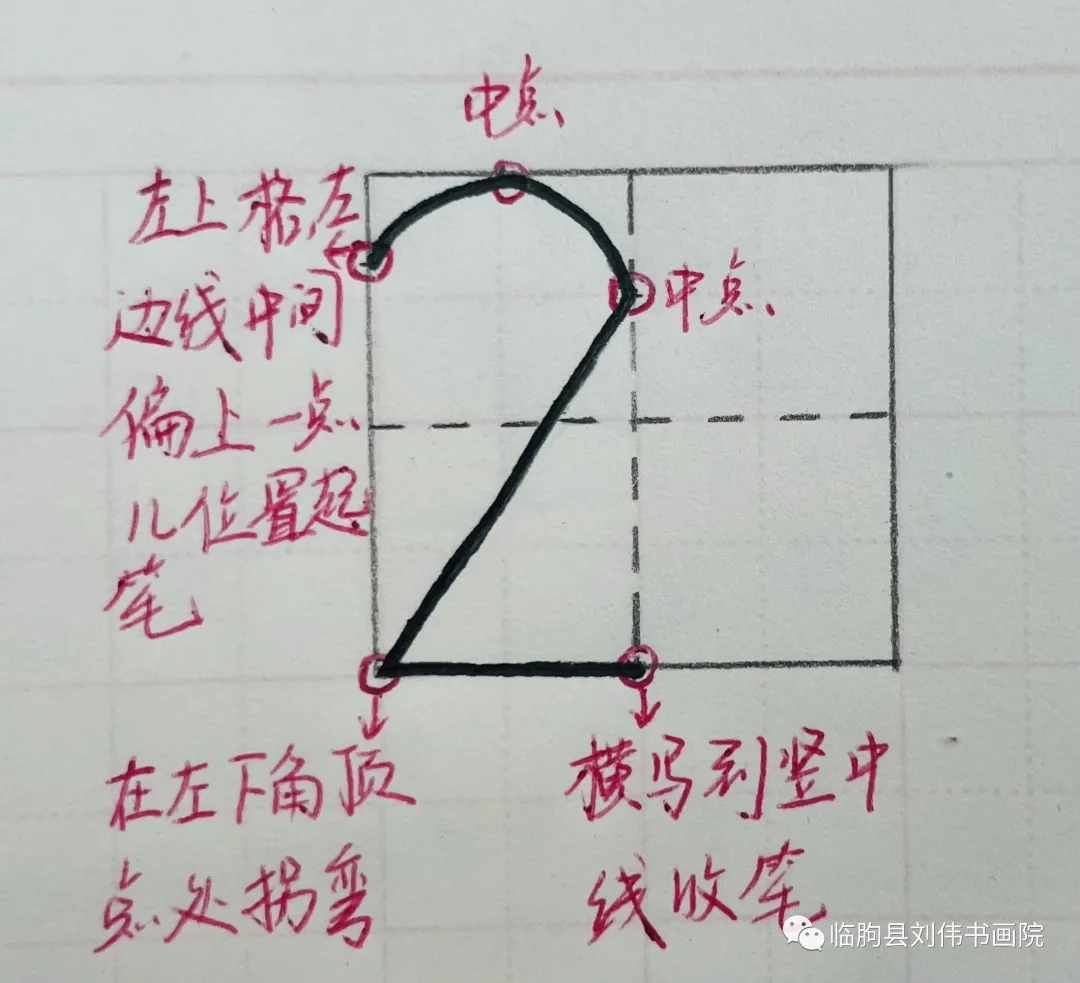 中点
左上格左
边线中间
偏上一点
儿位置起
笔
中点
在左下角顶
点处拐弯
横写到竖中
线收笔
临朐县刘伟书画院